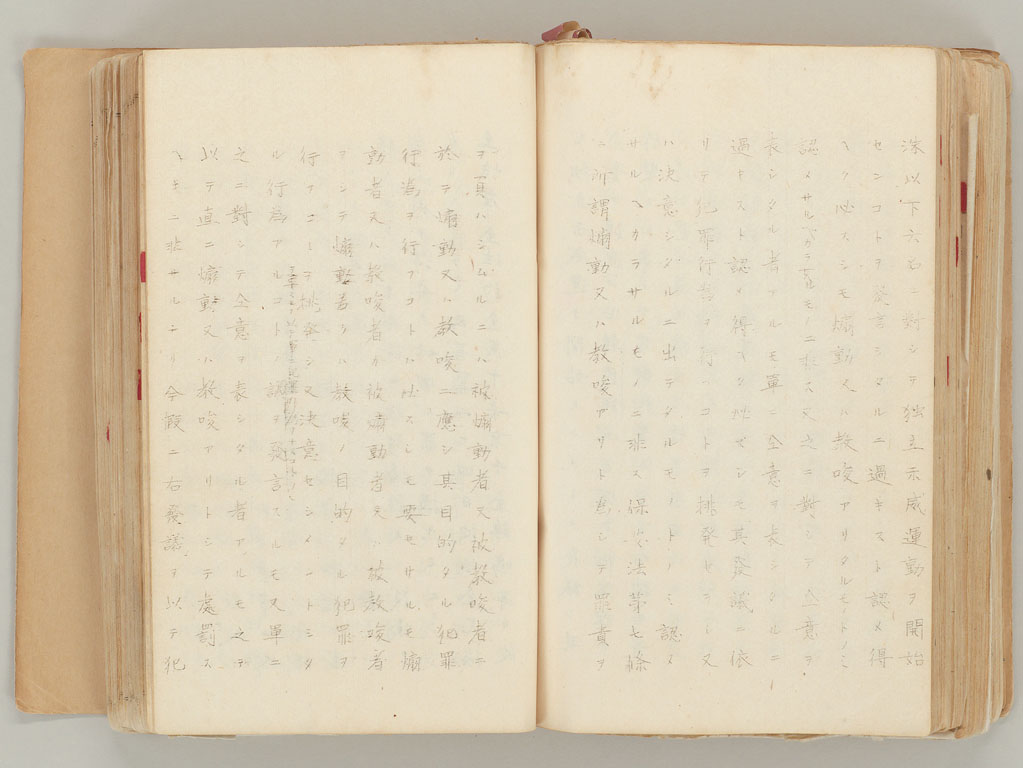 洙以下六名ニ對シテ独立示威運動ヲ開始
センコトヲ發言シタルニ過キスト認メ得
ヘク必スシモ煽動又ハ教唆アリタルモノトノミ
認メサルベカラサルモノニ非ス又之ニ對シテ仝意ヲ
表シタル者アルモ單ニ仝意ヲ表シタルニ
過キスト認メ得ヘク 其發議ニ依
リテ犯罪行爲ヲ行フコトヲ挑発セラレ又
ハ決意シタルニ出テタルモノトノミ認ム
サルヘカラサルモノニ非ス保安法第七條
ニ所謂煽動又ハ教唆アリト爲シテ罪責ヲ
ヲ負ハシムルニハ被煽動者又被教唆者ニ
於テ煽動又ハ教唆ニ應シ其目的タル犯罪
行為ヲ行フコトハ必スシモ要セサルモ煽
動者又ハ教唆者カ被煽動者又ハ被教唆者
ヲシテ煽動若クハ教唆ノ目的タル犯罪ヲ
行フコトヲ挑発シ又決意セシメントシタ
ル行為アルコトノ 發言スルモ又單ニ
之ニ對シテ仝意ヲ表シタル者アルモ之ヲ
以テ直ニ煽動又ハ教唆アリトシテ處罰ス
ヘキニ非サルナリ今假ニ右發議ヲ以テ犯